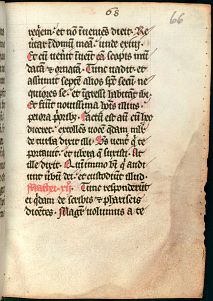 68
66
requiem. et non inveniens dicit. Re
vertar in domum meam. unde exivi.
Et cum venerit invenit eam scopis mun
datam et ornatam. Tunc vadit. et
assumit septem alios spiritus secum ne
quiores se. et ingressi habitant ibi.
Et fiunt novissima hominis illius.
peiora prioribus. Factum est autem cum hec
diceret. extollens vocem quedam mulier
de turba dixit illi. Beatus venter qui te
portavit. et ubera que suxisti. At
ille dixit. Quinimmo beati qui audi
unt verbum dei. et custodiunt illud.
Matheus xii. Tunc responderunt
ei quidam de scribis et phariseis
dicentes. Magister volumus a te